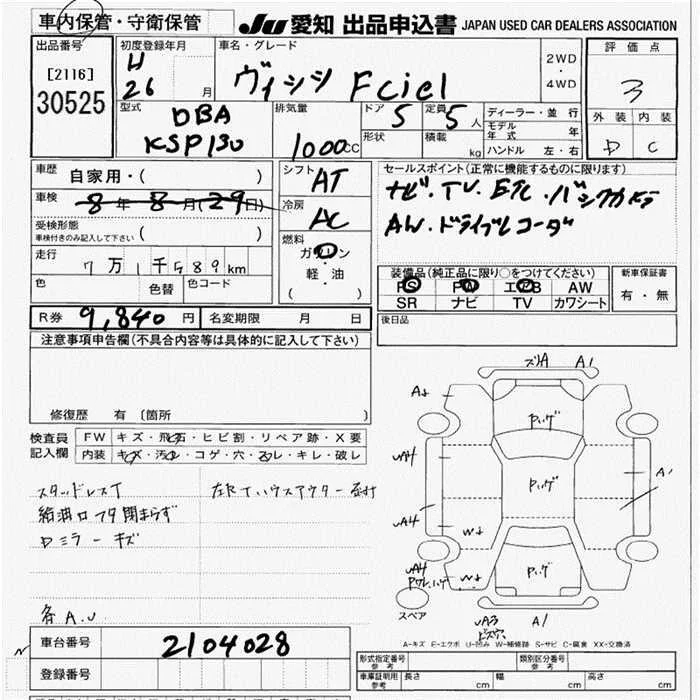 車内保管・守衛保管
JU 愛知 出品申込書 JAPAN USED CAR DEALERS ASSOCIATION
出品番号
[2116]
30525
初度登録年月
H
26 月
車名・グレード
ヴィッツ F ciel
2WD
・
4WD
評価点
3
外装 内装
D C
型式
DBA
KSP130
排気量
1000cc
ドア
5
定員
5人
形状
積載
kg
ディーラー・並行
モデル
年式 年
ハンドル 左・右
車歴
自家用・( )
車検
8年8月(29日)
受検形態
車検付きのみ記入して下さい ( )
走行
7万1千589km
色
色替
色コード
シフト
AT
冷房
AC
燃料
ガソリン
・
軽・油
( )
セールスポイント(正常に機能するものに限ります)
ナビ・TV・ETC・バックカメラ
AW・ドライブレコーダ
装備品(純正品に限り○をつけてください)
PS PW エアB AW
SR ナビ TV カワシート
新車保証書
有・無
R券 9,840円 名変期限 月 日
後日品
注意事項申告欄(不具合内容等は具体的に記入して下さい)
修復歴 有 〔箇所 〕
検査員
記入欄
FW キズ・飛石・ヒビ割・リペア跡・X要
内装 キズ・汚れ・コゲ・穴・スレ・キレ・破レ
スタッドレスT
給油口フタ閉まらず
Dミラーキズ
各A.U
ズリA A1
A↓
Pハゲ
UA4
Pハゲ
A1
UA4
W↓
UA4
Pワレ、ハゲ
W↓
Pハゲ
スペア
UA3
ビス穴
A1
A-キズ E-エクボ U-凹み W-補修跡 S-サビ C-腐食 XX-交換済
車台番号 2104028
登録番号
形式指定番号
参考
類別区分番号
参考
車庫証明用
参考
長さ cm 幅 cm 高さ cm